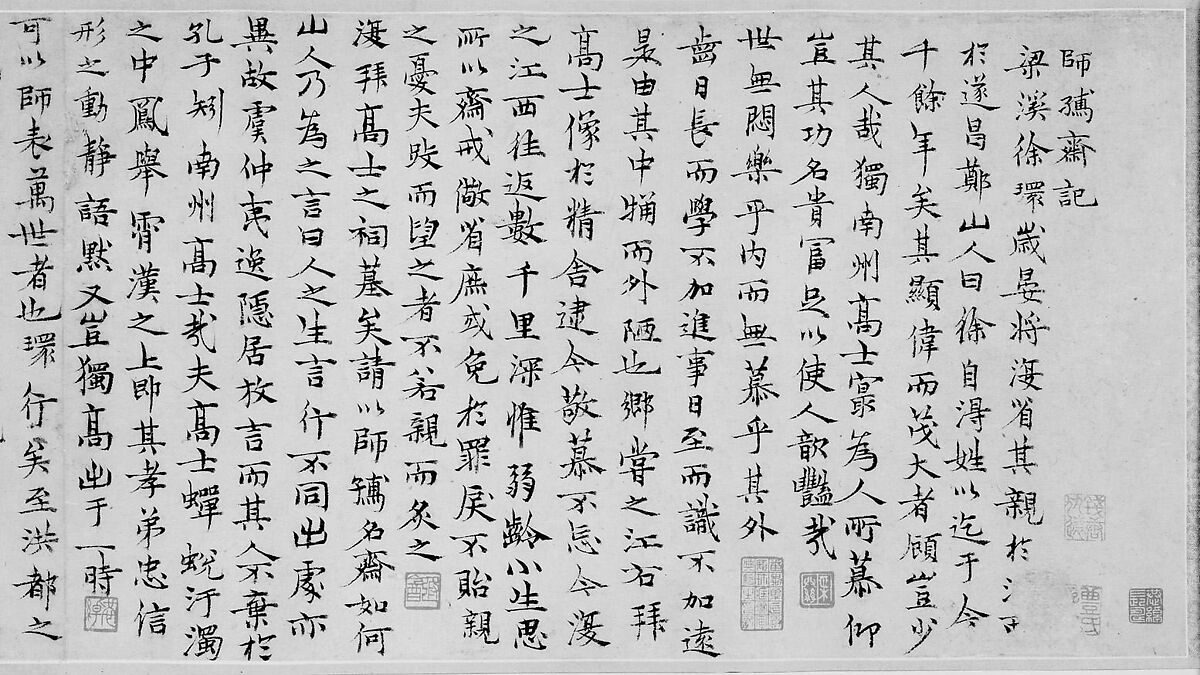 師孺齋記
梁溪徐環歲晏將復省其親於江右
於遂昌鄭山人曰徐自得姓以迄于今
千餘年矣其顯偉而茂大者顧豈少
其人哉獨南州高士寔為人所慕仰
豈其功名貴富足以使人歆豔哉
世無悶樂乎內而無慕乎其外
齒日長而學不加進事日至而識不加遠
是由其中痡而外陋也鄉嘗之江右拜
高士像於精舍逮今敬慕不忘今復
之江西往返數千里深惟弱齡小生思
所以齋戒儆省庶或免於罪戾不貽親
之憂夫跂而望之者不若親而炙之
復拜高士之祠墓矣請以師孺名齋如何
山人乃為之言曰人之生言行不同出處亦
異故虞仲夷逸隱居放言而其人不棄於
孔子矧南州高士哉夫高士蟬蛻汙濁
之中鳳舉霄漢之上即其孝弟忠信
形之動靜語默又豈獨高出于一時
可以師表萬世者也環行矣至洪都之